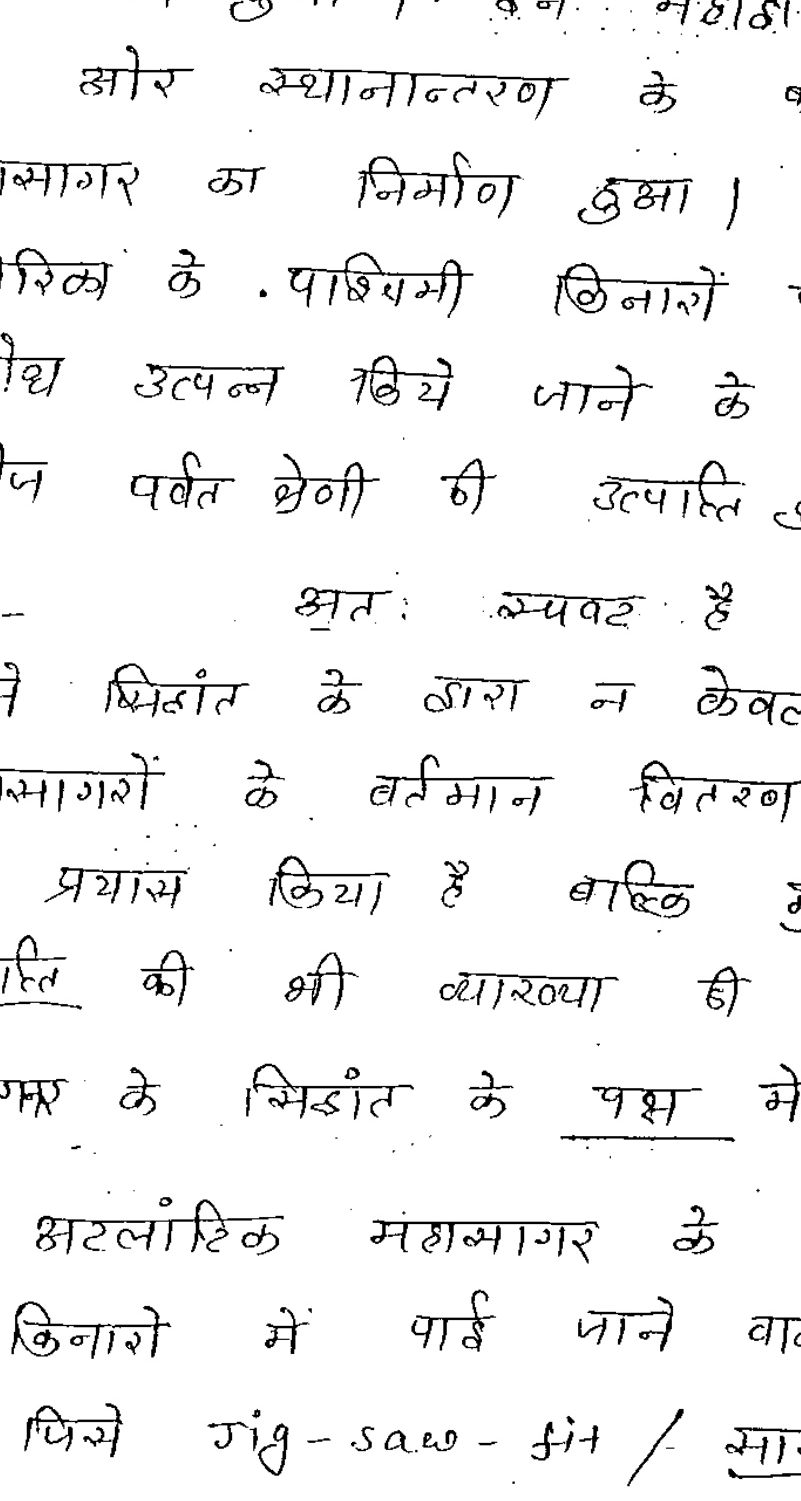 ओर स्थानान्तरण के
सागर का निर्माण हुआ।
रिका के पश्चिमी किनारों
उत्पन्न किये जाने के
पर्वत श्रेणी की उत्पत्ति
अतः स्पष्ट है
सिद्धांत के द्वारा न केवल
सागरों के वर्तमान वितरण
प्रयास किया है बल्कि
त्ति की भी व्याख्या की
के सिद्धांत के पक्ष में
अटलांटिक महासागर के
किनारो में पाई जाने
जिसे Jig-saw-fit /